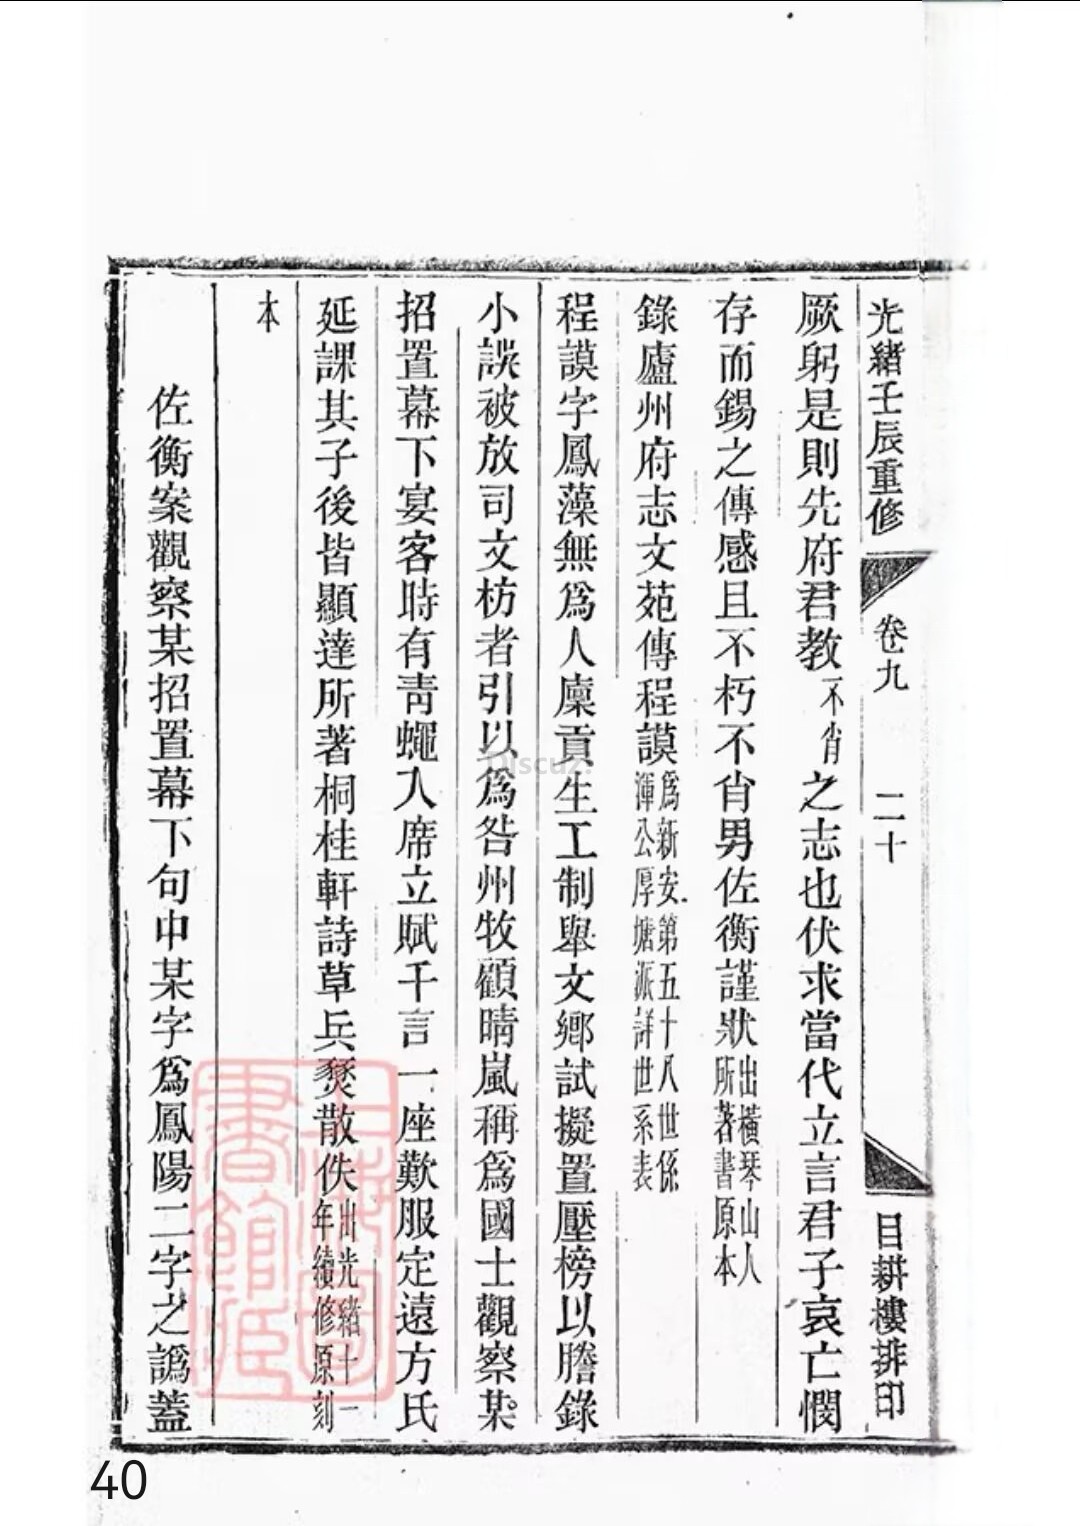 光緒壬辰重修
卷九
二十
目耕樓排印
厥躬是則先府君教不肖之志也伏求當代立言君子哀亡憫
存而錫之傳感且不朽不肖男佐衡謹狀出橫琴山人所著書原本
錄廬州府志文苑傳程謨爲新安第五十八世係渾公厚塘派詳世系表
程謨字鳳藻無爲人廩貢生工制舉文鄉試擬置壓榜以謄錄
小誤被放司文枋者引以爲咎州牧顧晴嵐稱爲國士觀察某
招置幕下宴客時有靑蠅入席立賦千言一座歎服定遠方氏
延課其子後皆顯達所著桐桂軒詩草兵燹散佚出光緒十一年續修原刻
本
佐衡案觀察某招置幕下句中某字爲鳳陽二字之譌蓋
上海圖書館藏
Discuz!
40